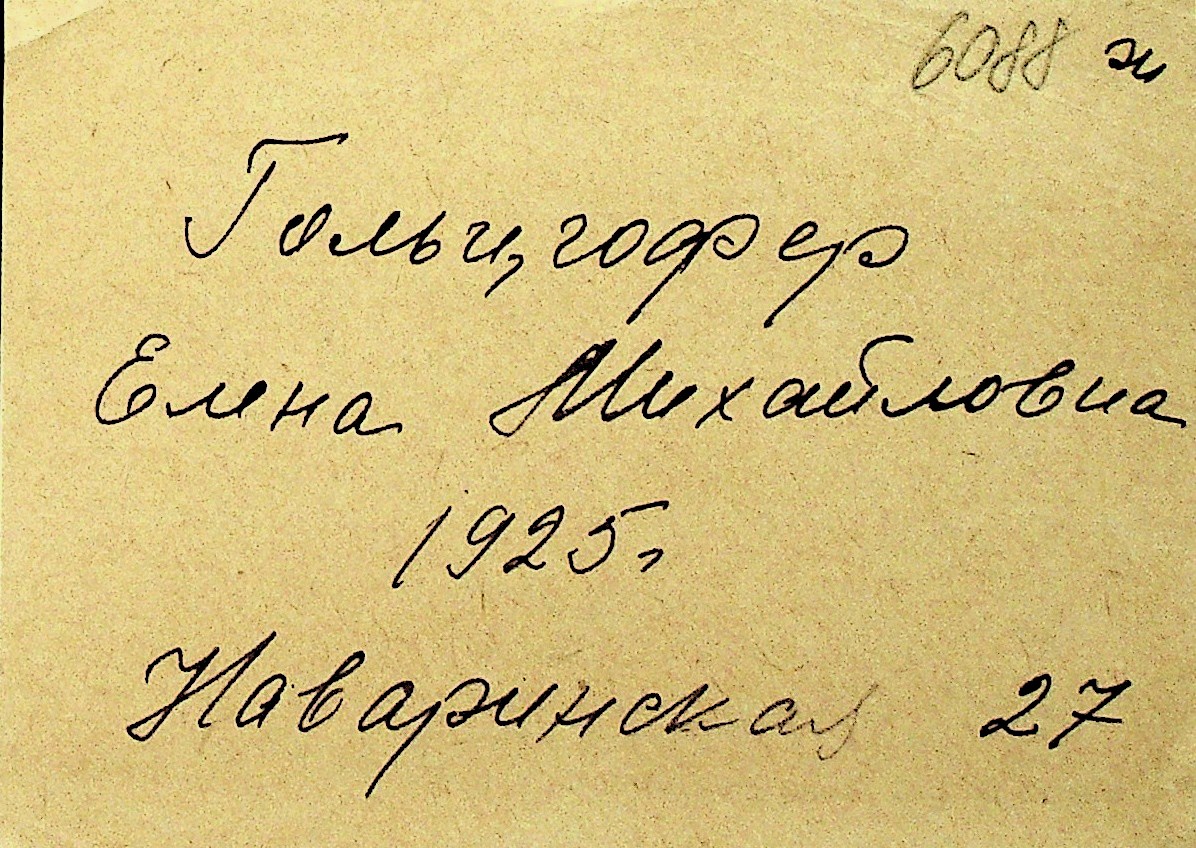 6088 ж
Гольцгофер
Елена Михайловна
1925г
Наваринская 27